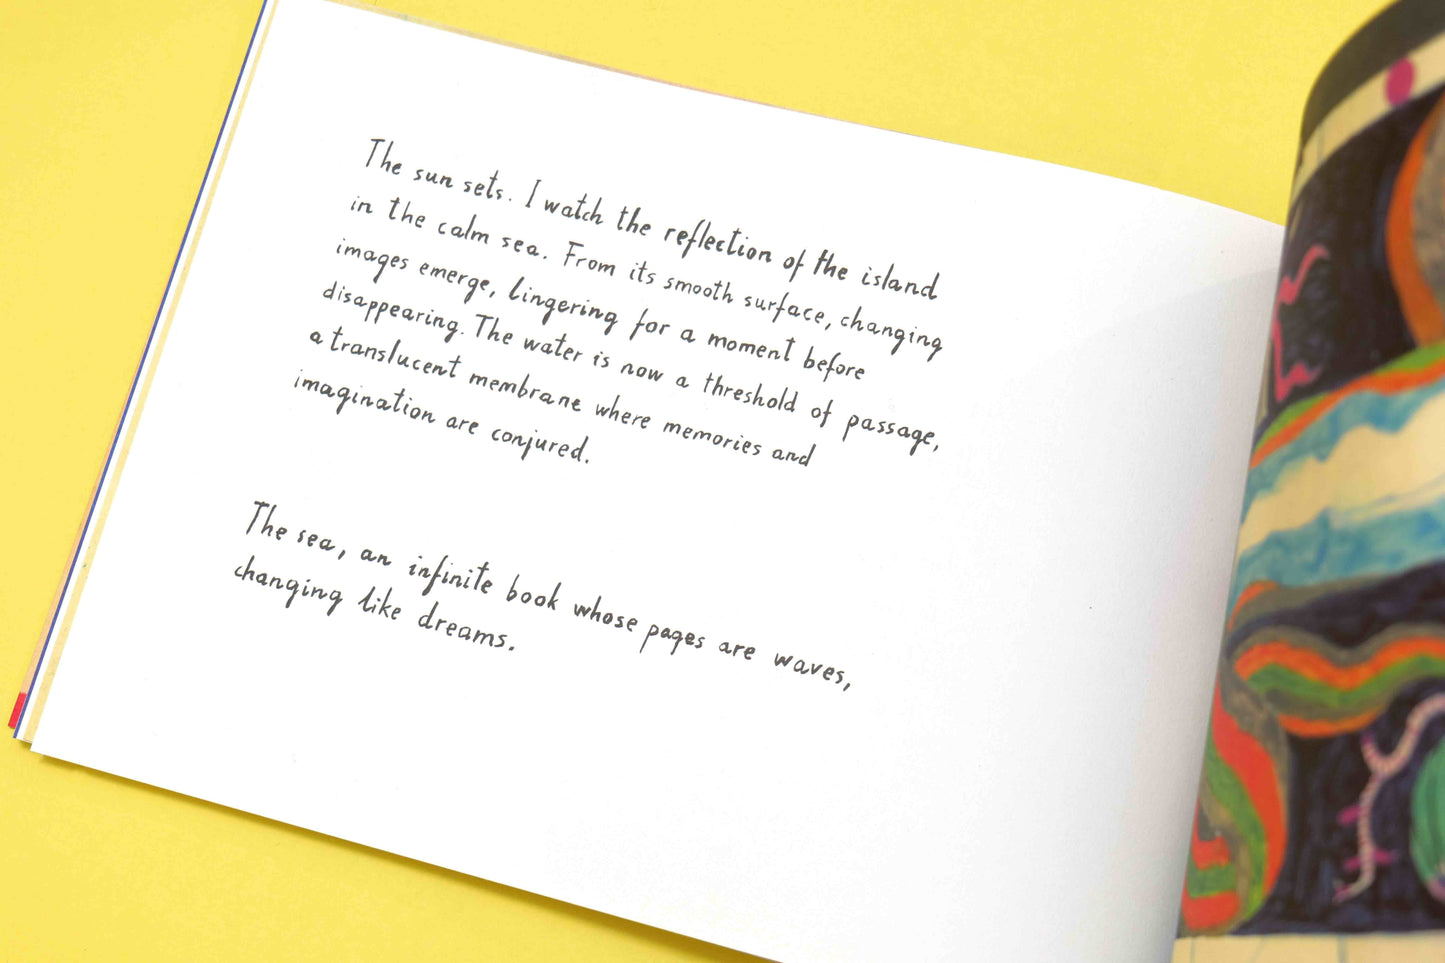 The sun sets. I watch the reflection of the island
in the calm sea. From its smooth surface, changing
images emerge, lingering for a moment before
disappearing. The water is now a threshold of passage,
a translucent membrane where memories and
imagination are conjured.
The sea, an infinite book whose pages are waves,
changing like dreams.